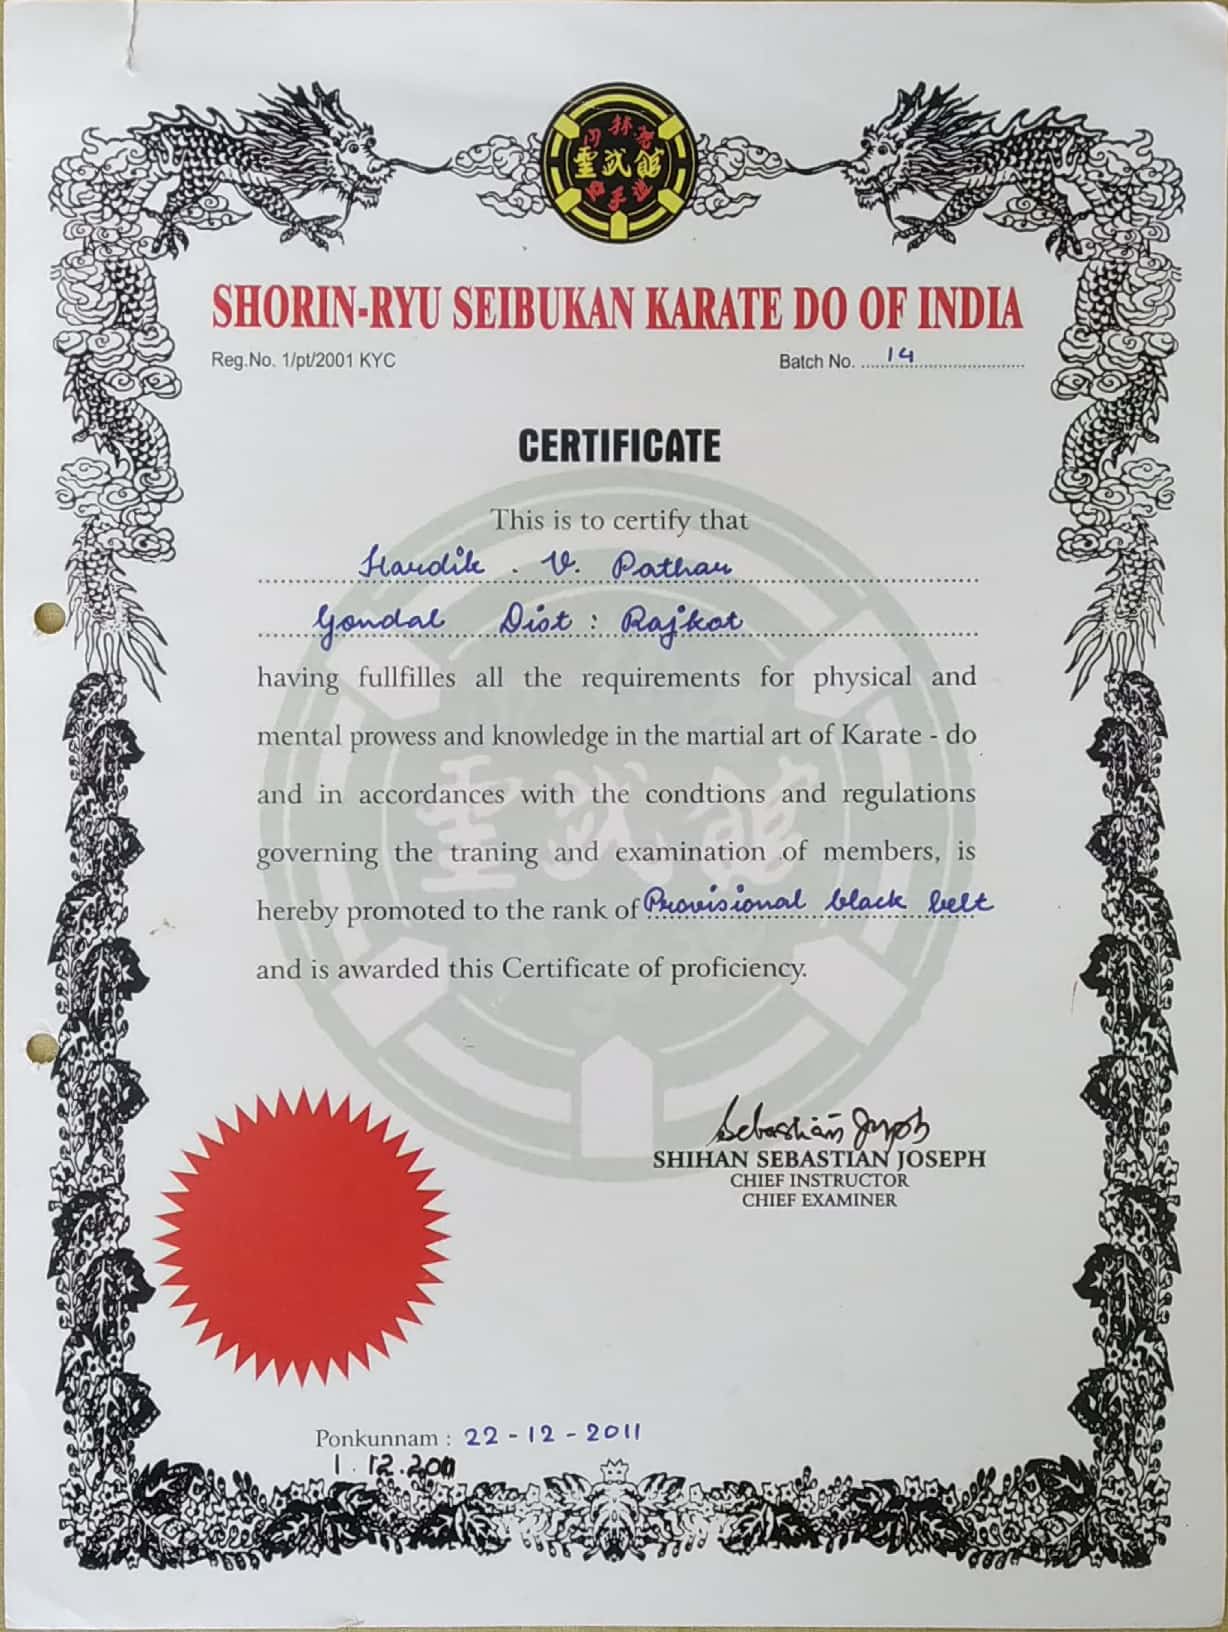 聖武館
SHORIN-RYU SEIBUKAN KARATE DO OF INDIA
Reg.No. 1/pt/2001 KYC
Batch No. 14
CERTIFICATE
This is to certify that
Hardik . V. Pathar
Gondal Dist : Rajkot
having fullfilles all the requirements for physical and
mental prowess and knowledge in the martial art of Karate - do
and in accordances with the condtions and regulations
governing the traning and examination of members, is
hereby promoted to the rank of Provisional black belt
and is awarded this Certificate of proficiency.
Sebastian Joseph
SHIHAN SEBASTIAN JOSEPH
CHIEF INSTRUCTOR
CHIEF EXAMINER
Ponkunnam : 22 - 12 - 2011
1.12.2011